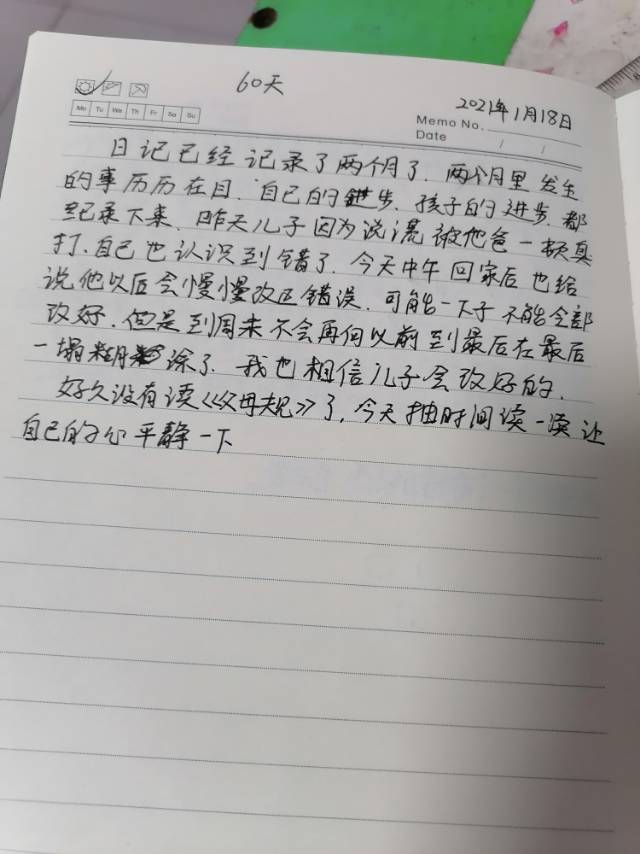 60天
2021年1月18日
Mo Tu We Th Fr Sa Su
Memo No.
Date / /
日记已经记录了两个月了.两个月里发生
的事历历在目.自己的进步.孩子的进步.都
纪录下来.昨天儿子因为说谎被他爸一顿真
打.自己也认识到错了.今天中午回家后也给
说他以后会慢慢改正错误.可能一下子不能全部
改好.但是到周末不会再向以前到最后在最后
一塌糊涂了.我也相信儿子会改好的.
好久没有读《父母规》了,今天抽时间读一读让
自己的心平静一下